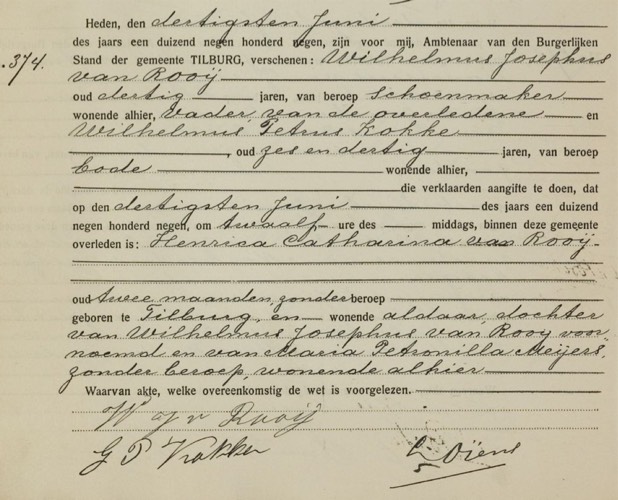 Heden, den dertigsten Juni
des jaars een duizend negen honderd negen, zijn voor mij, Ambtenaar van den Burgerlijken
.374. Stand der gemeente TILBURG, verschenen: Wilhelmus Josephus
van Rooij
oud dertig jaren, van beroep Schoenmaker
wonende alhier, vader van de overledene en
Wilhelmus Petrus Kokke
, oud zes en dertig jaren, van beroep
bode wonende alhier,
die verklaarden aangifte te doen, dat
op den dertigsten Juni des jaars een duizend
negen honderd negen, om twaalf ure des middags, binnen deze gemeente
overleden is: Henrica Catharina van Rooij
oud twee maanden, zonder beroep
geboren te Tilburg, en wonende aldaar, dochter
van Wilhelmus Josephus van Rooij voor-
noemd en van Maria Petronilla Meijers,
zonder beroep, wonende alhier
Waarvan akte, welke overeenkomstig de wet is voorgelezen.
W J v Rooij
P Kokke